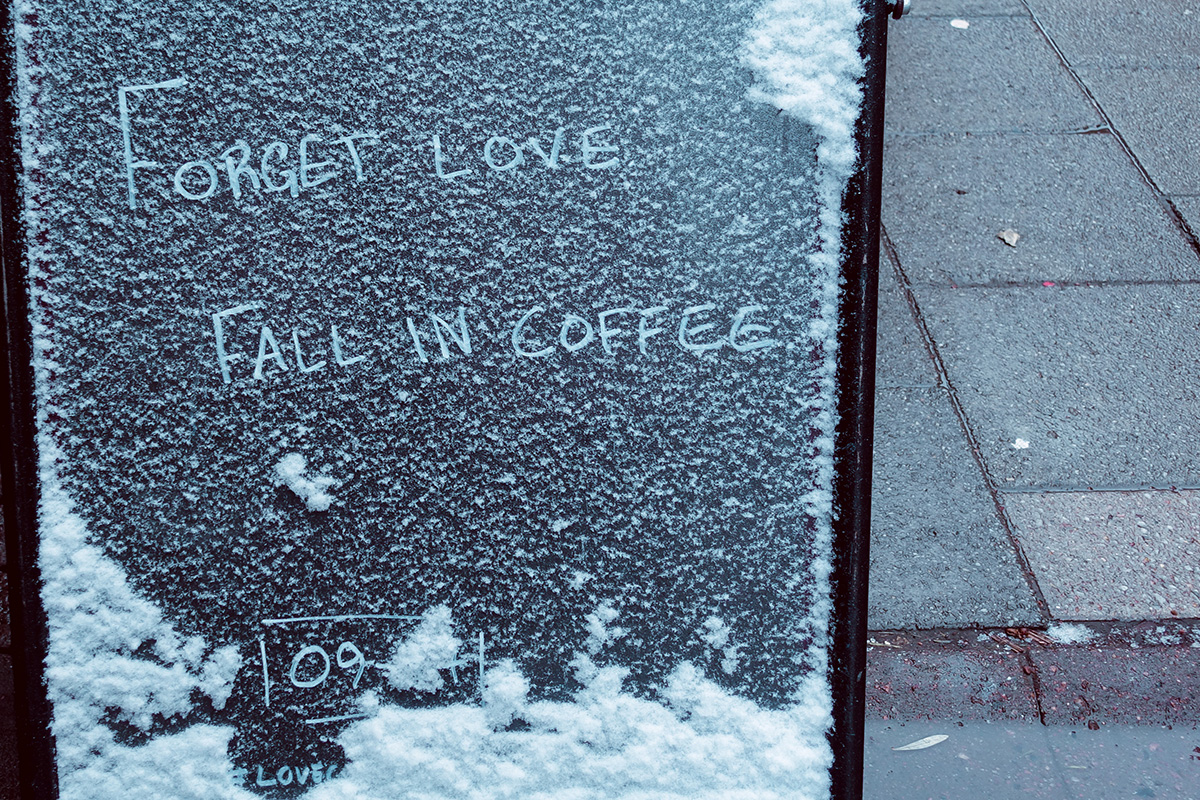 FORGET LOVE
FALL IN COFFEE
09